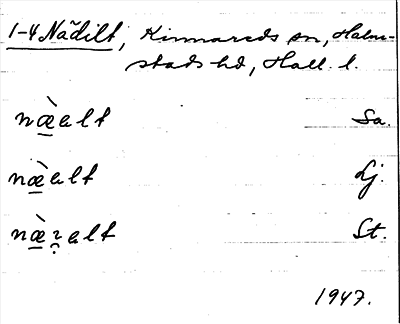 1-4 Nãdilt, Kinnareds sn, Halm-
stads hd, Hall. l.
næ̀elt Sa.
næ̀elt Lj.
næ̀ɿelt St.
1947.